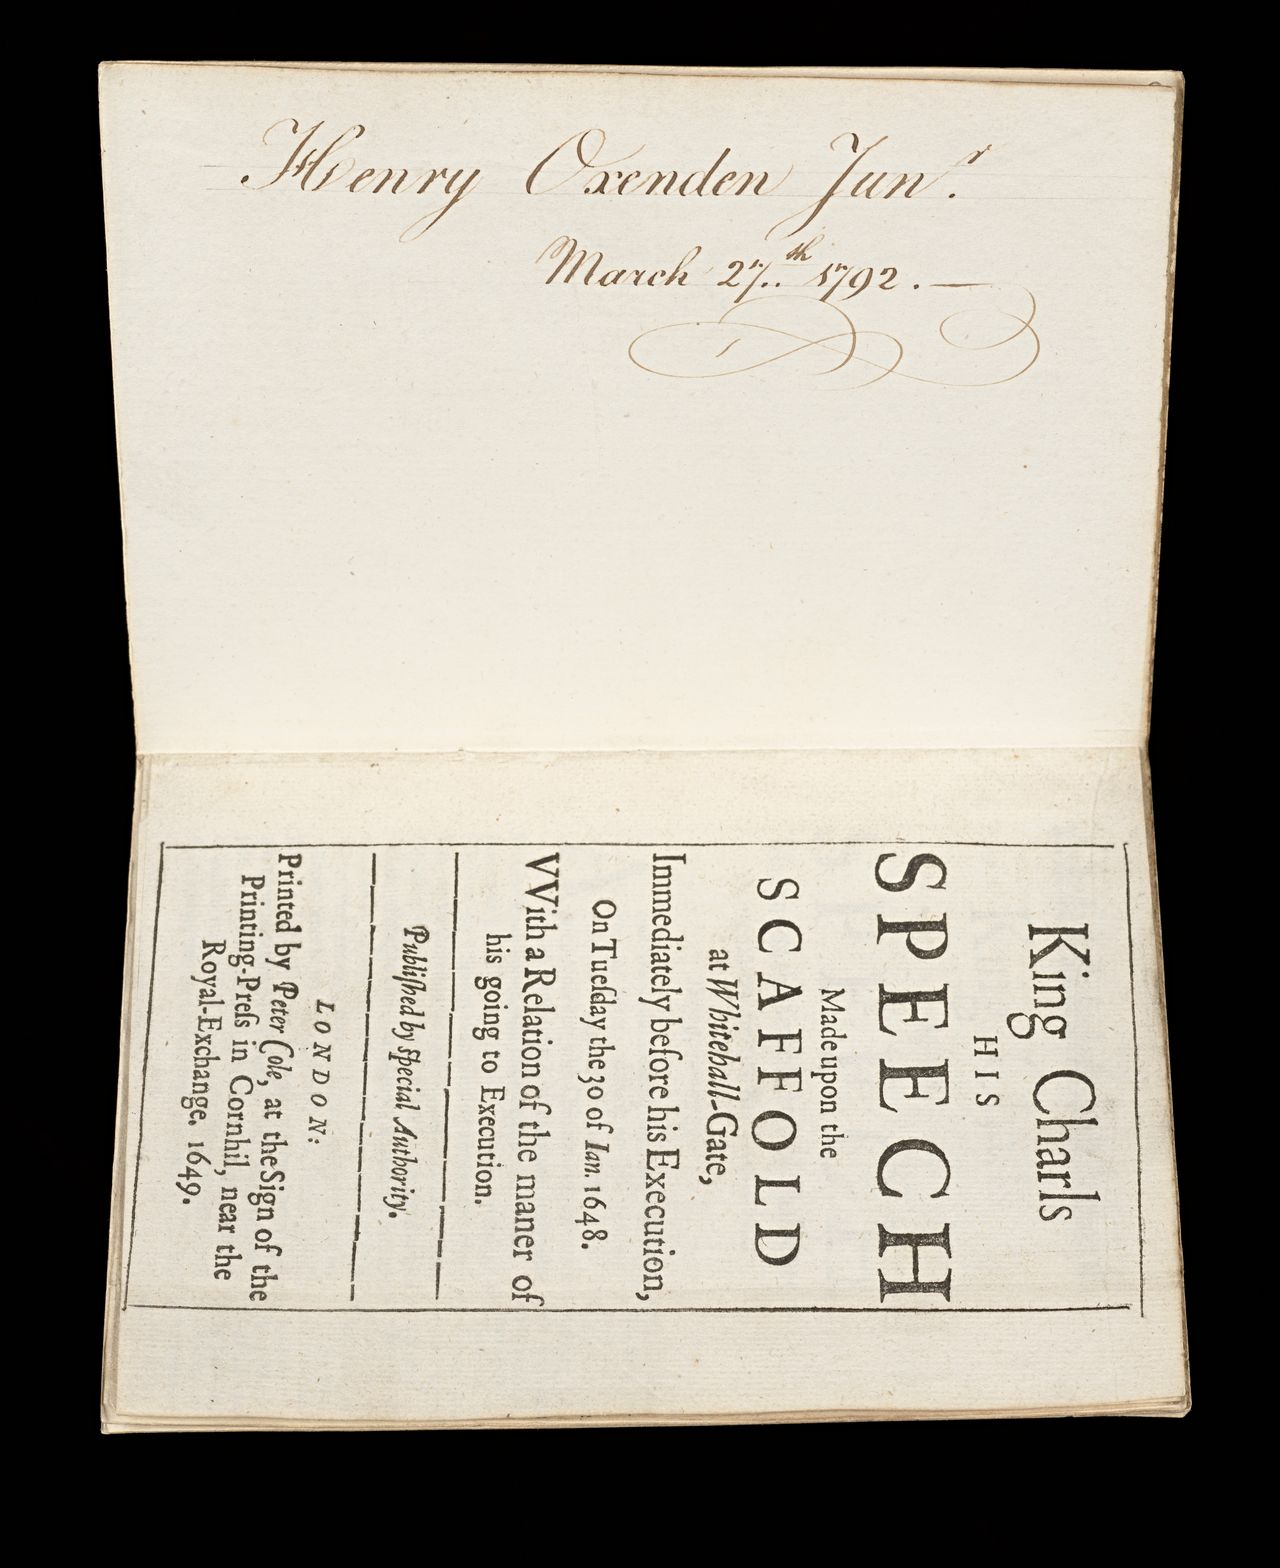 Henry Oxenden Junr.
March 27th. 1792. —
King Charls
HIS
SPEECH
Made upon the
SCAFFOLD
at Whitehall-Gate,
Immediately before his Execution,
On Tueſday the 30 of Ian. 1648.
VVith a Relation of the maner of
his going to Execution.
Publiſhed by ſpecial Authority.
LONDON:
Printed by Peter Cole, at the Sign of the
Printing-Preſs in Cornhil, near the
Royal-Exchange. 1649.